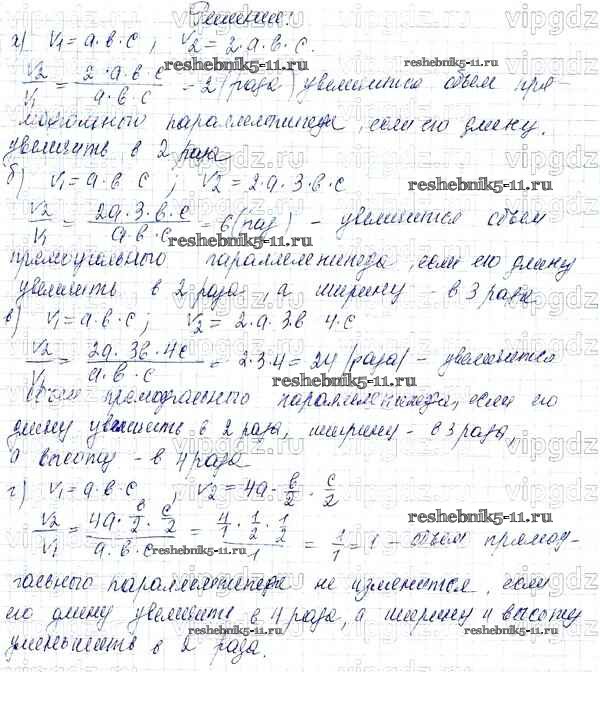 Решение:
а) V1 = a·b·c, V2 = 2·a·b·c.
V2/V1 = 2·a·b·c / a·b·c = 2 (раза) увеличится объем пря-
моугольного параллелепипеда, если его длину
увеличить в 2 раза
б) V1 = a·b·c; V2 = 2·a·3·b·c
V2/V1 = 2a·3·b·c / a·b·c = 6 (раз) - увеличится объем
прямоугольного параллелепипеда, если его длину
увеличить в 2 раза, а ширину - в 3 раза
в) V1 = a·b·c; V2 = 2·a·3b·4·c
V2/V1 = 2a·3b·4c / a·b·c = 2·3·4 = 24 (раза) - увеличится
объем прямоугольного параллелепипеда, если его
длину увеличить в 2 раза, ширину - в 3 раза,
а высоту - в 4 раза
г) V1 = a·b·c, V2 = 4a·b/2·c/2
V2/V1 = 4a·b/2·c/2 / a·b·c = 4/1·1/2·1/2 / 1 = 1/1 = 1 - объем прямоу-
гольного параллелепипеда не изменится, если
его длину увеличить в 4 раза, а ширину и высоту
уменьшить в 2 раза.
vipgdz.ru
reshebnik5-11.ru